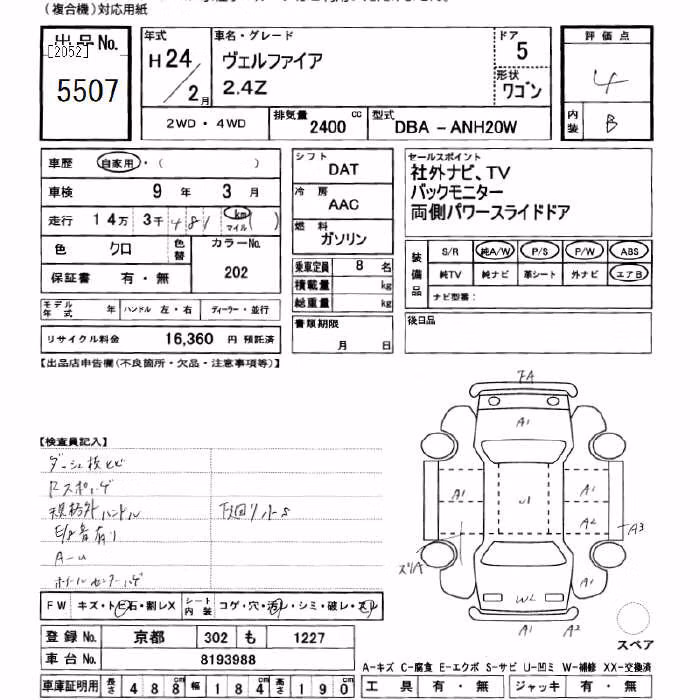 (複合機)対応用紙
出品No.
[2052]
5507
年式
H24/2月
車名・グレード
ヴェルファイア
2.4Z
ドア
5
形状
ワゴン
評価点
4
内装
B
2WD・4WD
排気量
2400 cc
型式
DBA - ANH20W
車歴 自家用・( )
車検 9年 3月
走行 14万 3千 481 km マイル ( )
色 クロ 色替
カラーNo.
202
保証書 有・無
シフト
DAT
冷房
AAC
燃料
ガソリン
乗車定員 8 名
積載量 kg
総重量 kg
セールスポイント
社外ナビ、TV
バックモニター
両側パワースライドドア
装備品
S/R 純A/W P/S P/W ABS
純TV 純ナビ 革シート 外ナビ エアB
ナビ型番:
モデル年式 年 ハンドル 左・右 ディーラー・並行
リサイクル料金 16,360 円 預託済
書類期限
月 日
後日品
【出品店申告欄(不良箇所・欠品・注意事項等)】
【検査員記入】
ダッシュ板ヒビ
規格外ハンドル
下廻り小S
E/g音有り
A-U
FA
A1
A1
A1
U1
A2
A3
A1
W2
A1
A2
スペア
FW キズ・トビ石・割レX シート内装 コゲ・穴・汚レ・シミ・破レ・スレ
登録No. 京都 302 も 1227
車台No. 8193988
車庫証明用 長さ 488cm 幅 184cm 高さ 190cm
A-キズ C-腐食 E-エクボ S-サビ U-凹ミ W-補修 XX-交換済
工具 有・無 ジャッキ 有・無